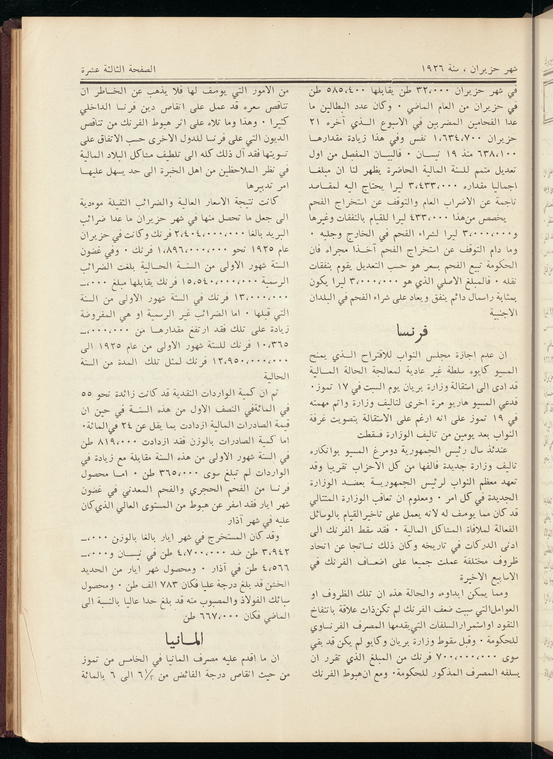 شهر حزيران ، سنة ١٩٢٦
الصفحة الثالثة عشرة
في شهر حزيران ٣٢٬٠٠٠ طن يقابلها ٥٨٥٬٤٠٠ طن
في حزيران من العام الماضي ٠ وكان عدد البطالين ما
عدا الفحامين المضربين في الاسبوع الذي آخره ٢١
حزيران ١٬٦٣٤٬٧٠٠ نفس وفي هذا زيادة مقدارها
٦٣٨٬١٠٠ منذ ١٩ نيسان ٠ فالبيان المفصل من اول
تعديل متمم للسنة المالية الحاضرة يظهر لنا ان مبلغا
اجماليا مقداره ٣٬٤٣٣٬٠٠٠ ليرا يحتاج اليه لمقاصد
ناجمة عن الاضراب العام والتوقف عن استخراج الفحم
يخصص من هذا ٤٣٣٬٠٠٠ ليرا للقيام بالنفقات وغيرها
و٣٬٠٠٠٬٠٠٠ ليرا لشراء الفحم في الخارج وجلبه ٠
وما دام التوقف عن استخراج الفحم آخذا مجراه فان
الحكومة تبيع الفحم بسعر هو حسب التعديل يقوم بنفقات
نقله ٠ فالمبلغ الاصلي الذي هو ٣٬٠٠٠٬٠٠٠ ليرا يكون
بمثابة راسمال دائم ينفق ويعاد على شراء الفحم في البلدان
الاجنبية
فرنسا
ان عدم اجازة مجلس النواب للاقتراح الذي يمنح
المسيو كايوه سلطة غير عادية لمعالجة الحالة المالية
قد ادى الى استقالة وزارة بريان يوم السبت في ١٧ تموز٠
فدعي المسيو هاريو مرة اخرى لتاليف وزارة واتم مهمته
في ١٩ تموز على انه ارغم على الاستقالة بتصويت غرفة
النواب بعد يومين من تاليف الوزارة فسقطت
عندئذ سال رئيس الجمهورية ومرغ المسيو بوانكاره
تاليف وزارة جديدة فالفها من كل الاحزاب تقريبا وقد
تعهد معظم النواب لرئيس الجمهورية بعضد الوزارة
الجديدة في كل امر ٠ ومعلوم ان تعاقب الوزارة المتتالي
قد كان مما يوسف له لانه يعمل على تاخير القيام بالوسائل
الفعالة لملافاة المشاكل المالية ٠ فقد سقط الفرنك الى
ادنى الدركات في تاريخه وكان ذلك ناتجا عن اتحاد
ظروف مختلفة عملت جميعا على اضعاف الفرنك في
الاسابيع الاخيرة
ومما يمكن ابداوءه والحالة هذه ان تلك الظروف او
العوامل التي سببت ضعف الفرنك لم تكن ذات علاقة بانتفاخ
النقود او استمرار السلفات التي يقدمها المصرف الفرنساوي
للحكومة ٠ وقبل سقوط وزارة بريان وكايو لم يكن قد بقي
سوى ٧٠٠٬٠٠٠٬٠٠٠ فرنك من المبلغ الذي تقرر ان
يسلفه المصرف المذكور للحكومة٠ ومع ان هبوط الفرنك
من الامور التي يوسف لها فلا يذهب عن الخاطر ان
تناقص سعره قد عمل على انقاص دين فرنسا الداخلي
كثيرا ٠ وهذا وما تلاه على اثر هبوط الفرنك من تناقص
الديون التي على فرنسا للدول الاخرى حسب الاتفاق على
تسويتها فقد آل ذلك كله الى تلطيف مشاكل البلاد المالية
في نظر الملاحظين من اهل الخبرة الى حد يسهل عليها
امر تدبيرها
كانت نتيجة الاسعار العالية والضرائب الثقيلة موءدية
الى جعل ما تحصل منها في شهر حزيران ما عدا ضرائب
البريد بالغا ٢٬٤٠٤٬٠٠٠٬٠٠٠ فرنك وكانت في حزيران
عام ١٩٢٥ نحو ١٬٨٩٦٬٠٠٠٬٠٠٠ فرنك ٠ وفي غضون
الستة شهور الاولى من السنة الحالية بلغت الضرائب
الرسمية ١٥٬٥٤٠٬٠٠٠٬٠٠٠ فرنك يقابلها مبلغ ٠٠٠٬ــ
١٣٬٠٠٠٬٠٠٠ فرنك في الستة شهور الاولى من السنة
التي قبلها ٠ اما الضرائب غير الرسمية او هي المفروضة
زيادة على تلك فقد ارتفع مقدارها من ٠٠٠٬٠٠٠٬ــ
١٠٬٣٦٥ فرنك للستة شهور الاولى من عام ١٩٢٥ الى
١٢٬٩٥٠٬٠٠٠٬٠٠٠ فرنك لمثل تلك المدة من السنة
الحالية
ثم ان كمية الواردات النقدية قد كانت زائدة نحو ٥٥
في المائة في النصف الاول من هذه السنة في حين ان
قيمة الصادرات المالية ازدادت بما يقل عن ٢٤ في المائة٠
اما كمية الصادرات بالوزن فقد ازدادت ٨١٩٬٠٠٠ طن
في الستة شهور الاولى من هذه السنة مقابلة مع زيادة في
الواردات لم تبلغ سوى ٣٦٥٬٠٠٠ طن ٠ اما محصول
فرنسا من الفحم الحجري والفحم المعدني في غضون
شهر ايار فقد اسفر عن هبوط من المستوى العالي الذي كان
عليه في شهر آذار
وقد كان المستخرج في شهر ايار بالغا بالوزن ٠٠٠٬ــ
٣٬٩٤٢ طن ضد ٤٬٧٠٠٬٠٠٠ طن في نيسان و٠٠٠٬ــ
٤٬٥٦٦ طن في آذار ٠ ومحصول شهر ايار من الحديد
الخشن قد بلغ درجة عليا فكان ٧٨٣ الف طن ٠ ومحصول
سبائك الفولاذ والمصبوب منه قد بلغ حدا عاليا بالنسبة الى
الماضي فكان ٦٦٧٬٠٠٠ طن
المانيا
ان ما اقدم عليه مصرف المانيا في الخامس من تموز
من حيث انقاص درجة الفائض من ٦١/٢ الى ٦ بالمائة